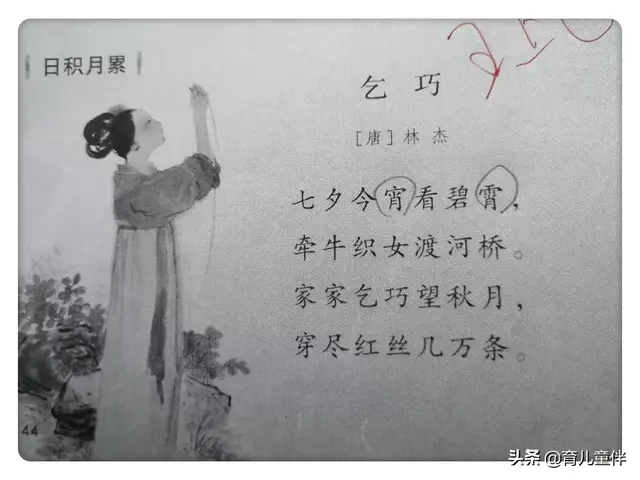 日积月累
乞巧
[唐]林杰
七夕今宵看碧霄，
牵牛织女渡河桥。
家家乞巧望秋月，
穿尽红丝几万条。
44
头条 @育儿童伴